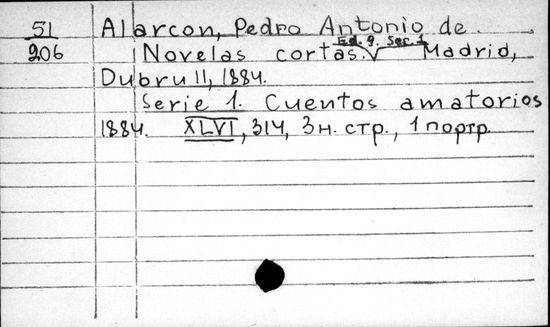 51
206
Alarcon, Pedro Antonio de.
Novelas cortas. Ed. 9. Ser. 1 Madrid,
Dubrull, 1884.
Serie 1. Cuentos amatorios
1884. XLVI, 314, 3 н. стр., 1 портр.